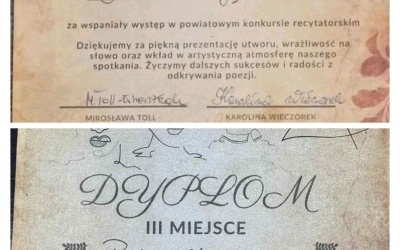 za wspaniały występ w powiatowym konkursie recytatorskim
Dziękujemy za piękną prezentację utworu, wrażliwość na
słowo oraz wkład w artystyczną atmosferę naszego
spotkania. Życzymy dalszych sukcesów i radości z
odkrywania poezji.
Karolina Wieczorek
MIROSŁAWA TOLL -
KAROLINA WIECZOREK
DYPLOM
III MIEJSCE